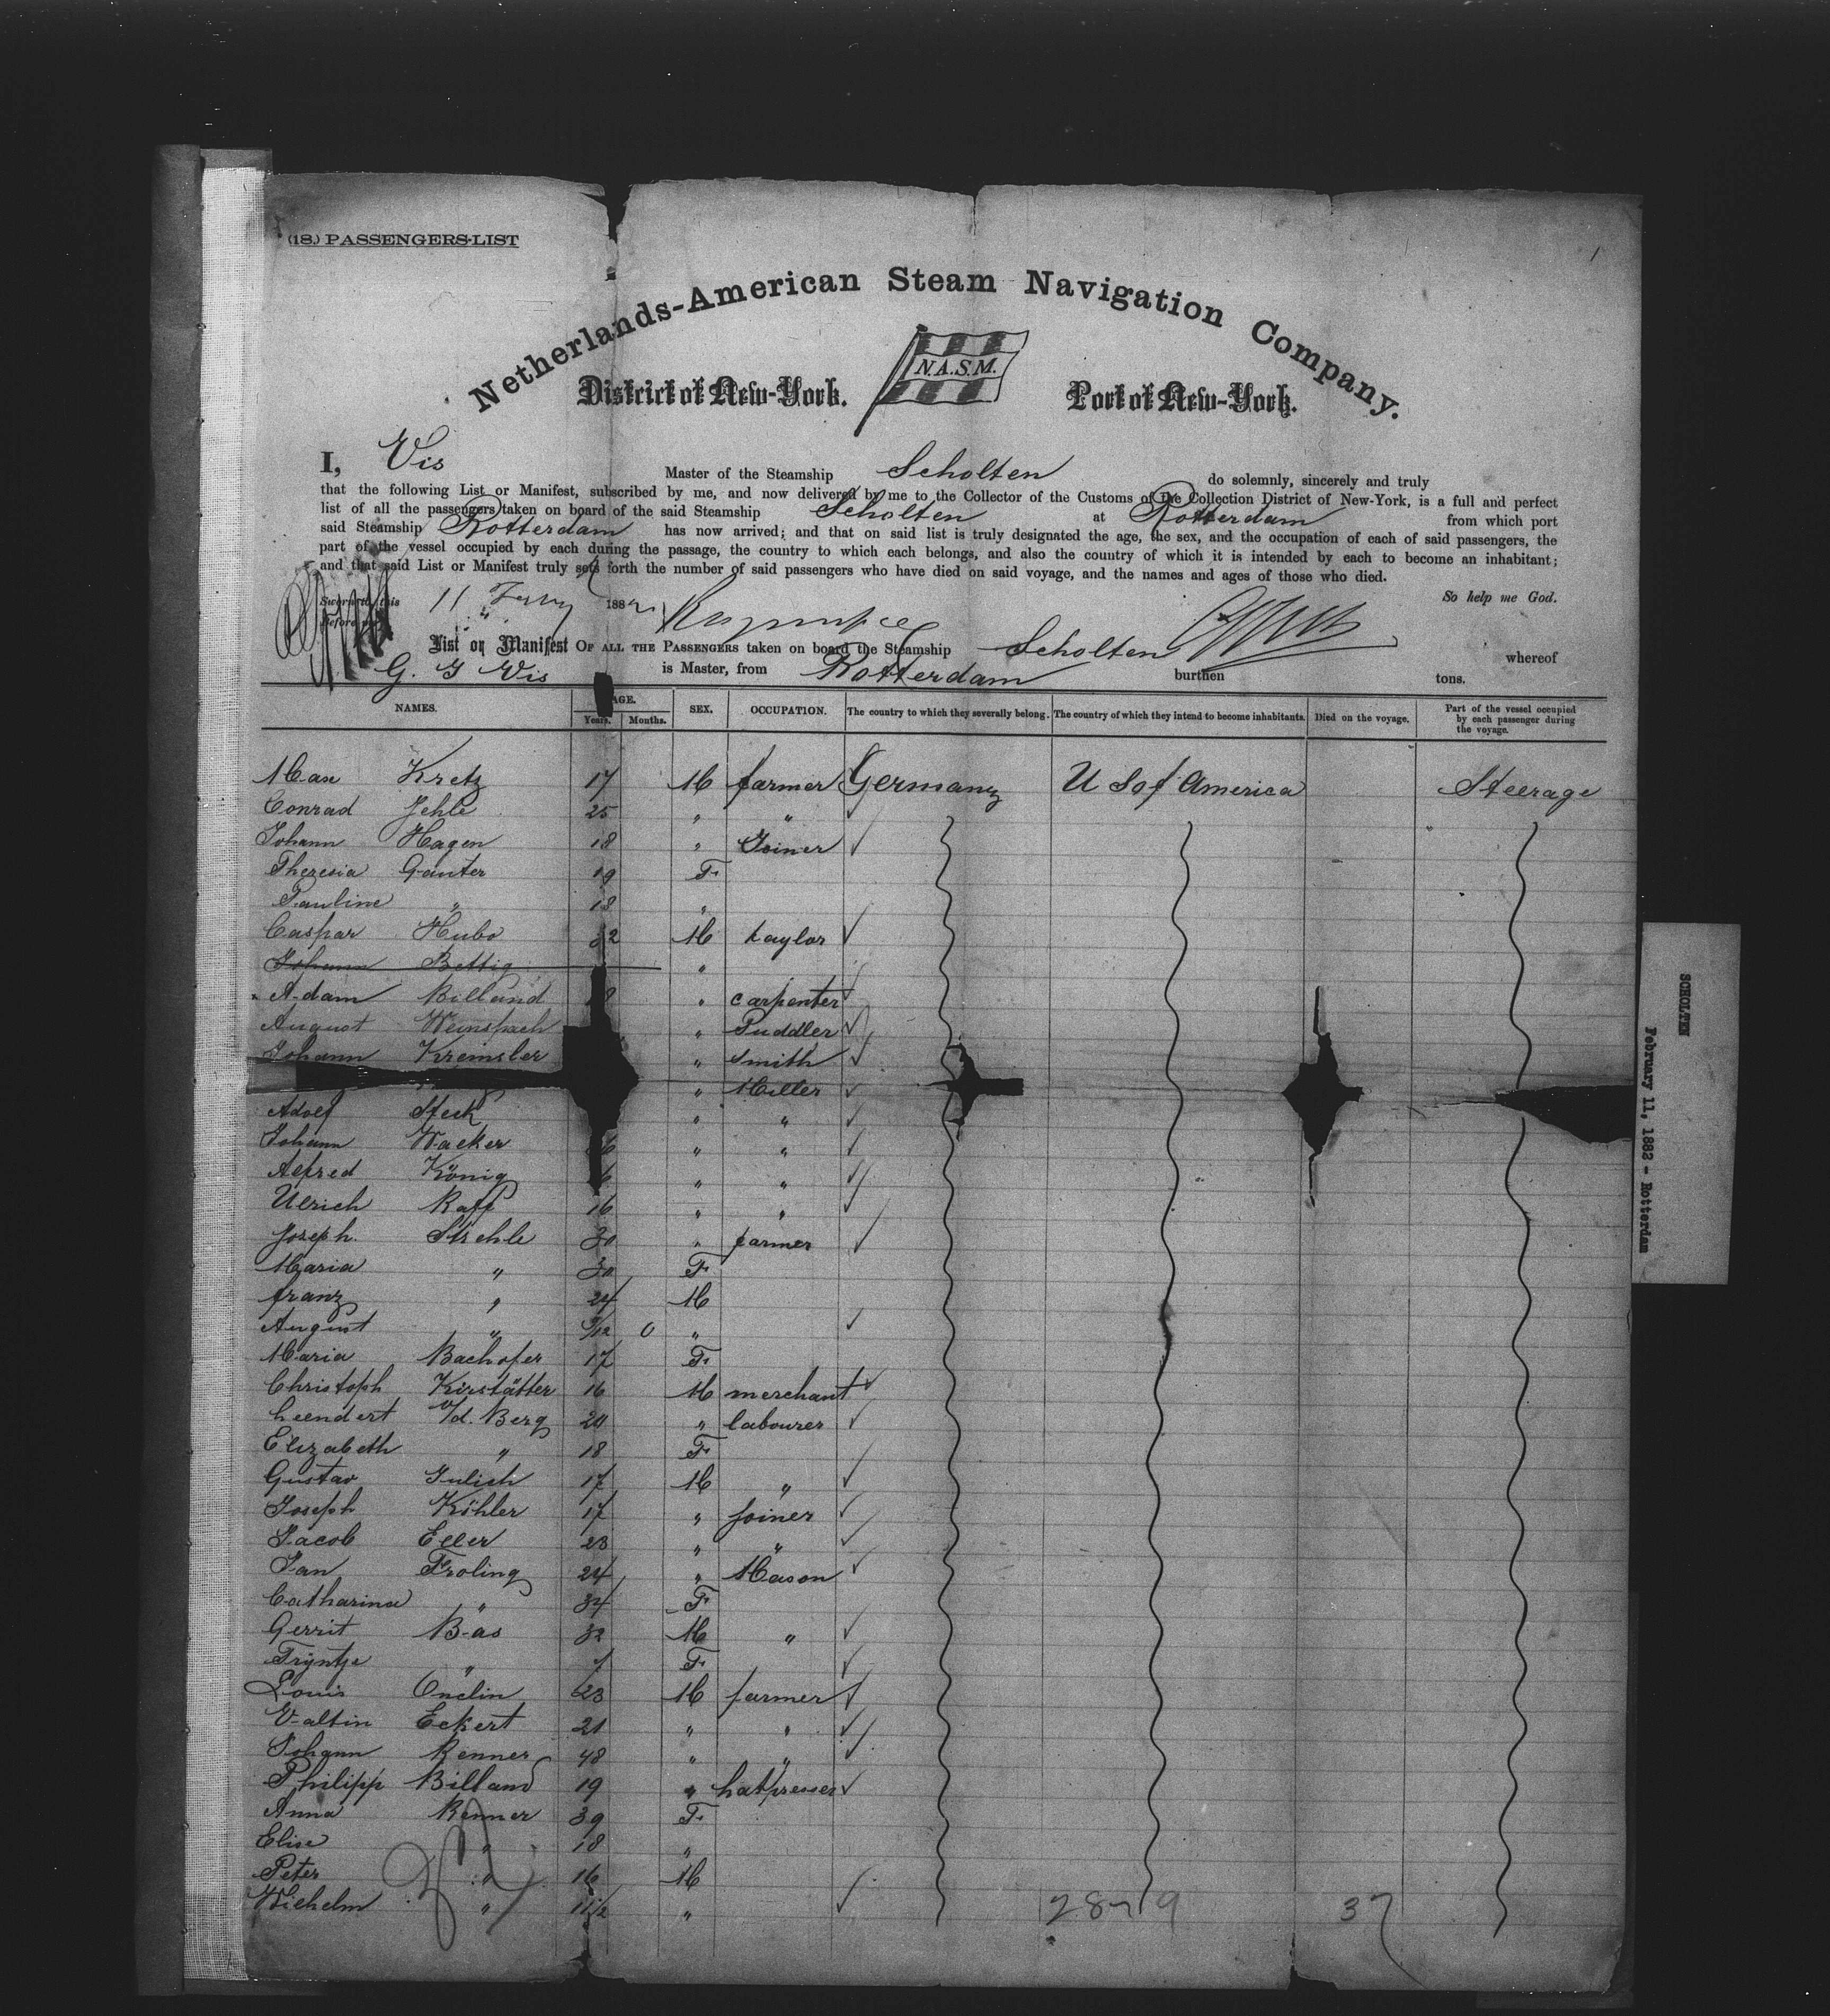 (18.) PASSENGERS-LIST
1
Netherlands-American Steam Navigation Company.
N.A.S.M.
District of New-York. Port of New-York.
I, Vis Master of the Steamship Scholten do solemnly, sincerely and truly
that the following List or Manifest, subscribed by me, and now delivered by me to the Collector of the Customs of the Collection District of New-York, is a full and perfect
list of all the passengers taken on board of the said Steamship Scholten at Rotterdam from which port
said Steamship Rotterdam has now arrived; and that on said list is truly designated the age, the sex, and the occupation of each of said passengers, the
part of the vessel occupied by each during the passage, the country to which each belongs, and also the country of which it is intended by each to become an inhabitant;
and that said List or Manifest truly sets forth the number of said passengers who have died on said voyage, and the names and ages of those who died.
Sworn to this 11 1882 So help me God.
Before me
List or Manifest OF ALL THE PASSENGERS taken on board the Steamship Scholten whereof
G. J Vis is Master, from Rotterdam burthen tons.
NAMES. AGE. Years. Months. SEX. OCCUPATION. The country to which they severally belong. The country of which they intend to become inhabitants. Died on the voyage. Part of the vessel occupied by each passenger during the voyage.
Max Kretz 17 M farmer Germany U S of America Steerage
Conrad Jehle 25 " "
Johann Hagen 18 " Joiner
Theresia Ganter 19 F
Pauline " 18 "
Caspar Hubo 32 M taylor
Johann Bettig "
Adam Billand 18 " carpenter
August Weinspach " Puddler
Johann Kremsler " Smith
" Miller
Adolf Steck " "
Johann Wacker " "
Alfred König " "
Ulrich Raff 16 " "
Joseph Strehle 30 " farmer
Maria " 30 F
Franz " 24 M
August " 0 "
Maria Bachofer 17 F
Christoph Kirstätter 16 M merchant
Leendert V/d. Berg 20 " labourer
Elizabeth " 18 F
Gustav Julich 17 M "
Joseph Köhler 17 " joiner
Jacob Eller 23 " "
Jan Froling 24 " Mason
Catharina " 34 F
Gerrit Bas 32 M "
Tryntje " F
Louis Onclin 23 M farmer
Valtin Eckert 21 " "
Johann Renner 48 " "
Philipp Billand 19 " hatpresser
Anna Renner 39 F
Elise " 18 "
Peter " 16 M
Wilhelm " 11½ "
37
SCHOLTEN
February 11, 1882 - Rotterdam